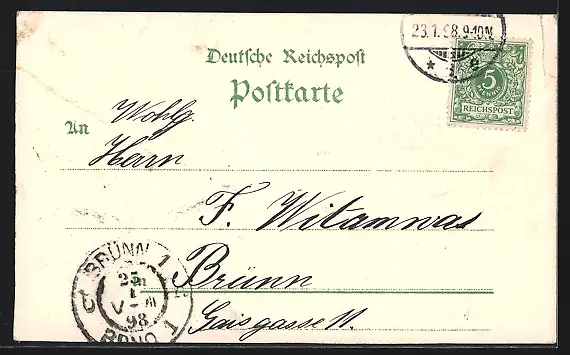 23.1.98.9-10N
Deutsche Reichspost
Postkarte
5
PFENNIG
REICHSPOST
Wohlg.
An
Herrn
F. Witamwas
Brünn
Gaisgasse 11.
BRÜNN 1
25
1
98
BRNO 1